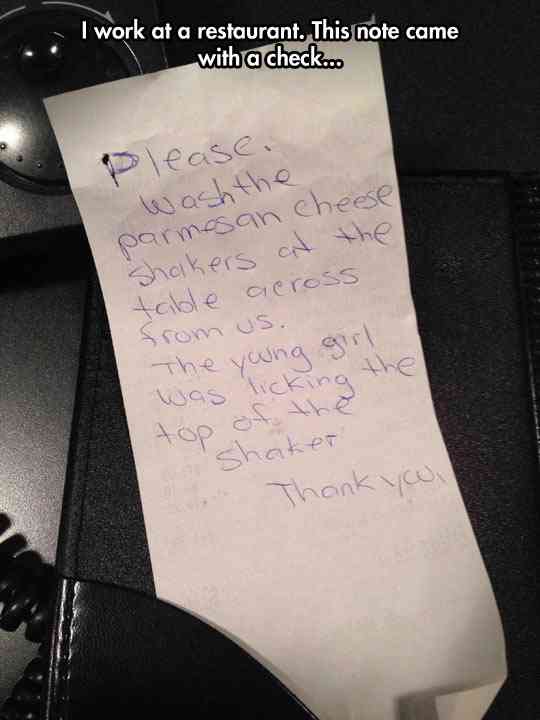 I work at a restaurant. This note came
with a check...
Please.
Wash the
parmesan cheese
shakers at the
table across
from us.
The young girl
was licking the
top of the
shaker
Thank you.